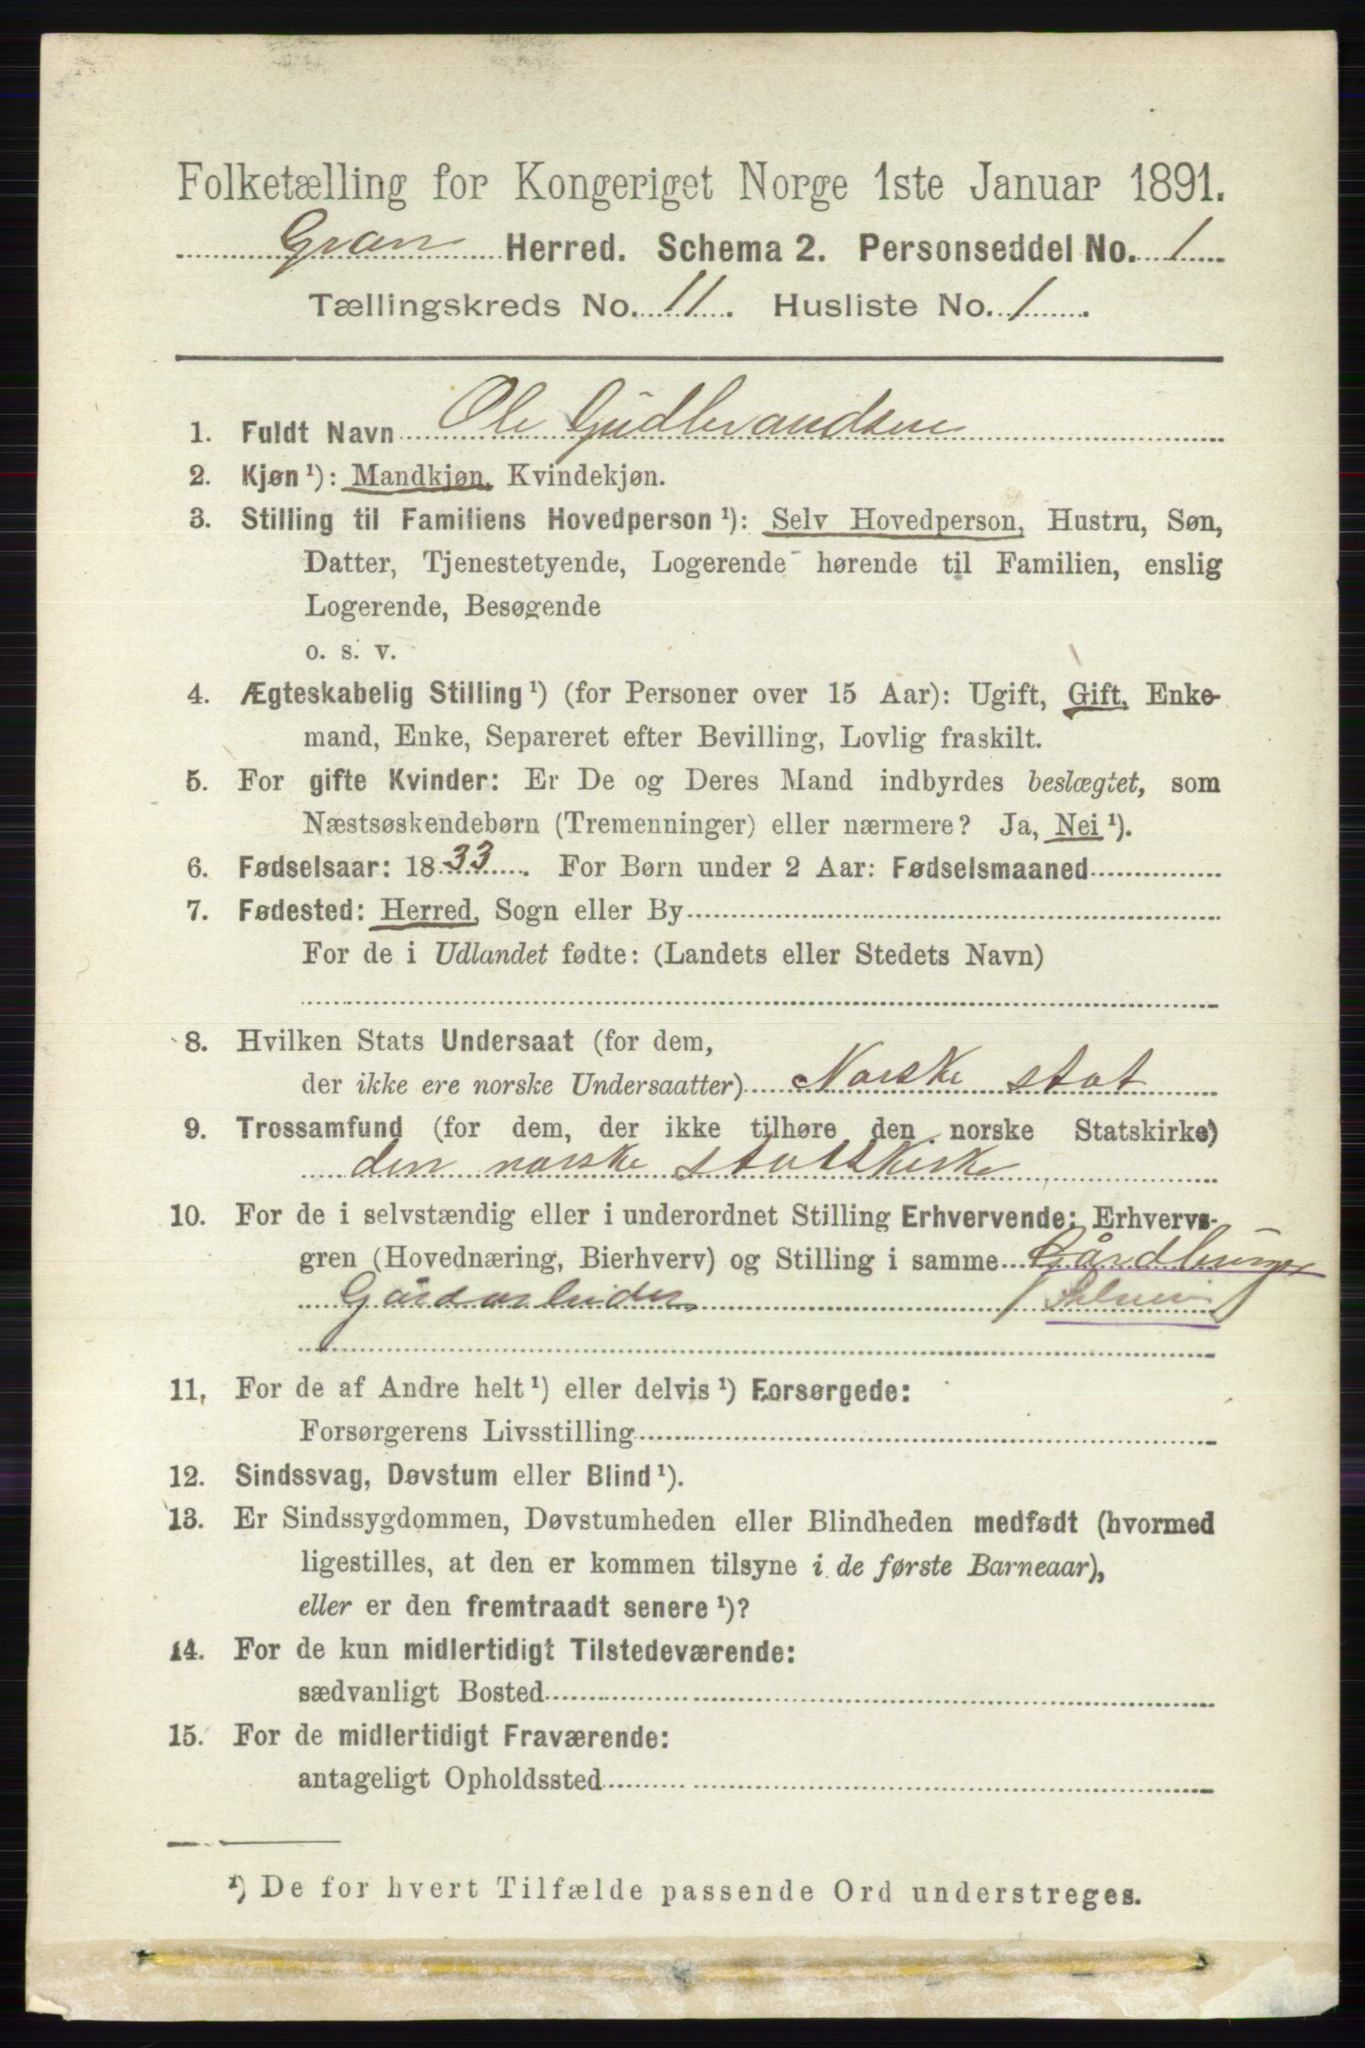 Folketælling for Kongeriget Norge 1ste Januar 1891.
Gran Herred. Schema 2. Personseddel No. 1
Tællingskreds No. 11. Husliste No. 1.
1. Fuldt Navn Ole Gudbrandsen
2. Kjøn ¹): Mandkjøn, Kvindekjøn.
3. Stilling til Familiens Hovedperson ¹): Selv Hovedperson, Hustru, Søn,
Datter, Tjenestetyende, Logerende hørende til Familien, enslig
Logerende, Besøgende
o. s. v.
4. Ægteskabelig Stilling ¹) (for Personer over 15 Aar): Ugift, Gift, Enke-
mand, Enke, Separeret efter Bevilling, Lovlig fraskilt.
5. For gifte Kvinder: Er De og Deres Mand indbyrdes beslægtet, som
Næstsøskendebørn (Tremenninger) eller nærmere? Ja, Nei ¹).
6. Fødselsaar: 1833. For Børn under 2 Aar: Fødselsmaaned
7. Fødested: Herred, Sogn eller By
For de i Udlandet fødte: (Landets eller Stedets Navn)
8. Hvilken Stats Undersaat (for dem,
der ikke ere norske Undersaatter) Norske stat
9. Trossamfund (for dem, der ikke tilhøre den norske Statskirke)
den norske statskirke
10. For de i selvstændig eller i underordnet Stilling Erhvervende: Erhvervs-
gren (Hovednæring, Bierhverv) og Stilling i samme Gårdbruger
Gårdarbeider
11. For de af Andre helt ¹) eller delvis ¹) Forsørgede:
Forsørgerens Livsstilling
12. Sindssvag, Døvstum eller Blind ¹).
13. Er Sindssygdommen, Døvstumheden eller Blindheden medfødt (hvormed
ligestilles, at den er kommen tilsyne i de første Barneaar),
eller er den fremtraadt senere ¹)?
14. For de kun midlertidigt Tilstedeværende:
sædvanligt Bosted
15. For de midlertidigt Fraværende:
antageligt Opholdssted
¹) De for hvert Tilfælde passende Ord understreges.